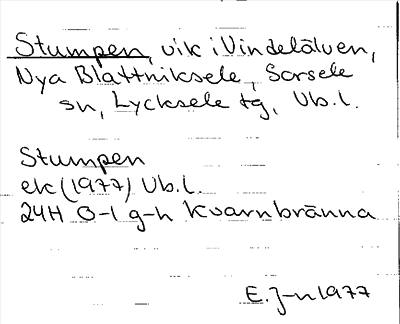 Stumpen, vik i Vindelälven,
Nya Blattniksele, Sorsele
sn, Lycksele tg, Vb.l.
Stumpen
ek (1977) Vb.l.
24H 0-1 g-h Kvarnbränna
E. J-n 1977